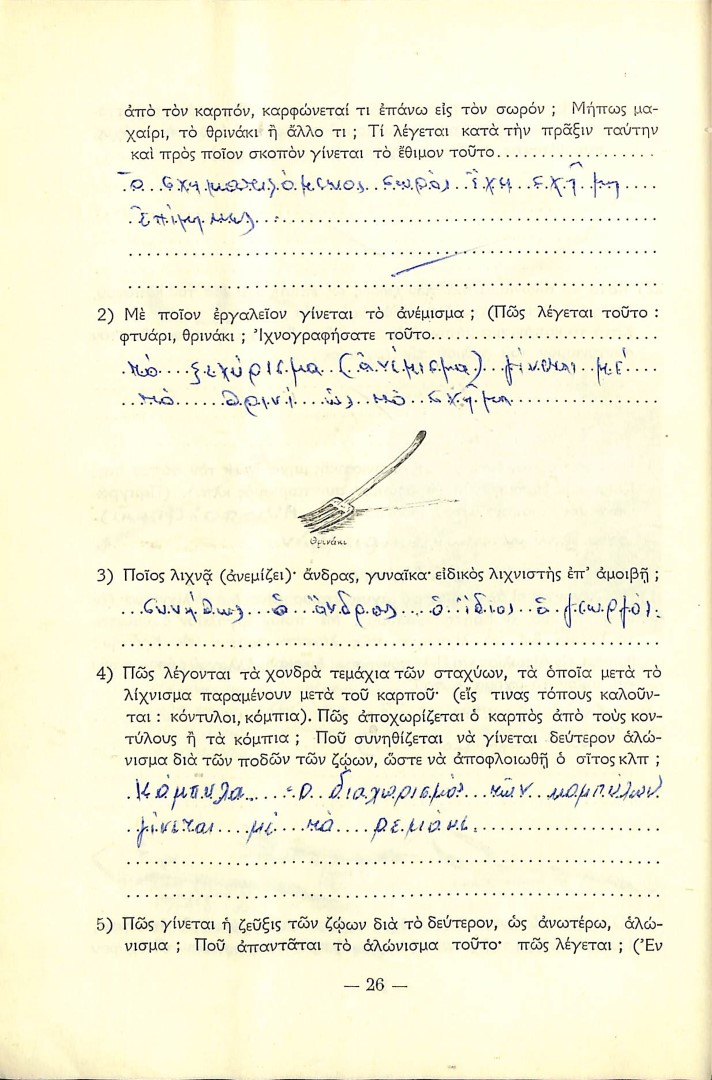 ἀπὸ τὸν καρπόν, καρφώνεταί τι ἐπάνω εἰς τὸν σωρόν ; Μήπως μα-
χαίρι, τὸ θρινάκι ἢ ἄλλο τι ; Τί λέγεται κατὰ τὴν πρᾶξιν ταύτην
καὶ πρὸς ποῖον σκοπὸν γίνεται τὸ ἔθιμον τοῦτο
Ὁ σχηματιζόμενος σωρὸς ἔχει σχῆμα
ἐπίμηκες.
2) Μὲ ποῖον ἐργαλεῖον γίνεται τὸ ἀνέμισμα ; (Πῶς λέγεται τοῦτο :
φτυάρι, θρινάκι ; Ἰχνογραφήσατε τοῦτο
τὸ ξεχύρισμα (ἀνέμισμα) γίνεται μέ
τὸ θρινί ὡς τὸ σχῆμα
Θρινάκι
3) Ποῖος λιχνᾷ (ἀνεμίζει)· ἄνδρας, γυναῖκα· εἰδικὸς λιχνιστὴς ἐπ' ἀμοιβῇ ;
Συνήθως ὁ ἄνδρας ὁ ἴδιος ὁ γεωργός.
4) Πῶς λέγονται τὰ χονδρὰ τεμάχια τῶν σταχύων, τὰ ὁποῖα μετὰ τὸ
λίχνισμα παραμένουν μετὰ τοῦ καρποῦ· (εἴς τινας τόπους καλοῦν-
ται : κόντυλοι, κόμπια). Πῶς ἀποχωρίζεται ὁ καρπὸς ἀπὸ τοὺς κον-
τύλους ἢ τὰ κόμπια ; Ποῦ συνηθίζεται νὰ γίνεται δεύτερον ἁλώ-
νισμα διὰ τῶν ποδῶν τῶν ζῴων, ὥστε νὰ ἀποφλοιωθῇ ὁ σῖτος κλπ ;
Κάμπυλα - ὁ διαχωρισμὸς τῶν καμπύλων
γίνεται μὲ τὸ ρεμόνι.
5) Πῶς γίνεται ἡ ζεῦξις τῶν ζῴων διὰ τὸ δεύτερον, ὡς ἀνωτέρω, ἁλώ-
νισμα ; Ποῦ ἀπαντᾶται τὸ ἁλώνισμα τοῦτο· πῶς λέγεται ; (Ἐν
— 26 —